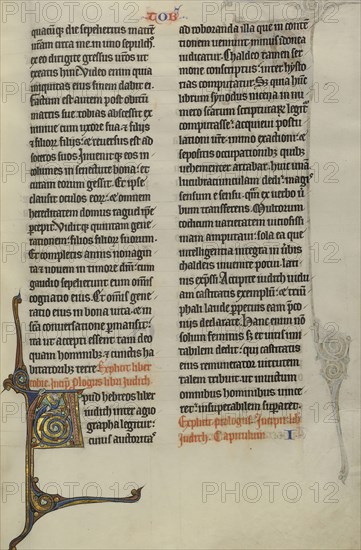 TOB
quacumque die sepelieritis matrem
vestram circa me in uno sepulchro
ex eo dirigite gressus vestros ut
exeatis hinc Video enim quia
iniquitas eius finem dabit ei
factum est autem post obitum
matris sue tobias abscessit ex
ninive cum uxore sua et filiis
et filiorum filiis et reversus est ad
soceros suos Invenitque eos in
columes in senectute bona et
curam eorum gessit Et ipse
clausit oculos eorum et omnem
hereditatem domus raguel ipse
percepit Viditque quintam gene
rationem filios filiorum suorum
Et completis annis nonagin
ta novem in timore domini cum
gaudio sepelierunt eum omnis
cognatio eius Et omnis gene
ratio eius in bona vita et in
sancta conversatione permansit
ita ut accepti essent tam deo
quam hominibus et cunctis ha
bitatoribus terre Explicit liber
tobie Incipit prologus libri Judith
Apud hebreos liber
iudith inter agio
grapha legitur
cuius auctoritas
ad roboranda illa que in con
tionem veniunt minus idonea
iudicatur Chaldeo tamen ser
mone conscriptus inter hysto
rias computatur Sed quia hunc
librum synodus nicena in nu
mero sanctarum scripturarum legitur
computasse acquievi postu
lationi vestre immo exactioni et
sepositis occupationibus quibus
vehementer artabar huic unam
lucubratiunculam dedi magis
sensum e sensu quam ex verbo verbum
transferens Multorum
codicum varietatem vitiosissi
mam amputavi sola ea que
intelligentia integra in verbis
chaldeis invenire potui lati
nis expressi Accipite iudith vidu
am castitatis exemplum et trium
phali laude perpetuis eam preconi
is declarate Hanc enim non
solum feminis sed et viris imi
tabilem dedit qui castitatis
eius remunerator virtutem
talem tribuit ut invictum
omnibus hominibus vince
ret insuperabilem superaret
Explicit prologus Incipit liber
Judith Capitulum I